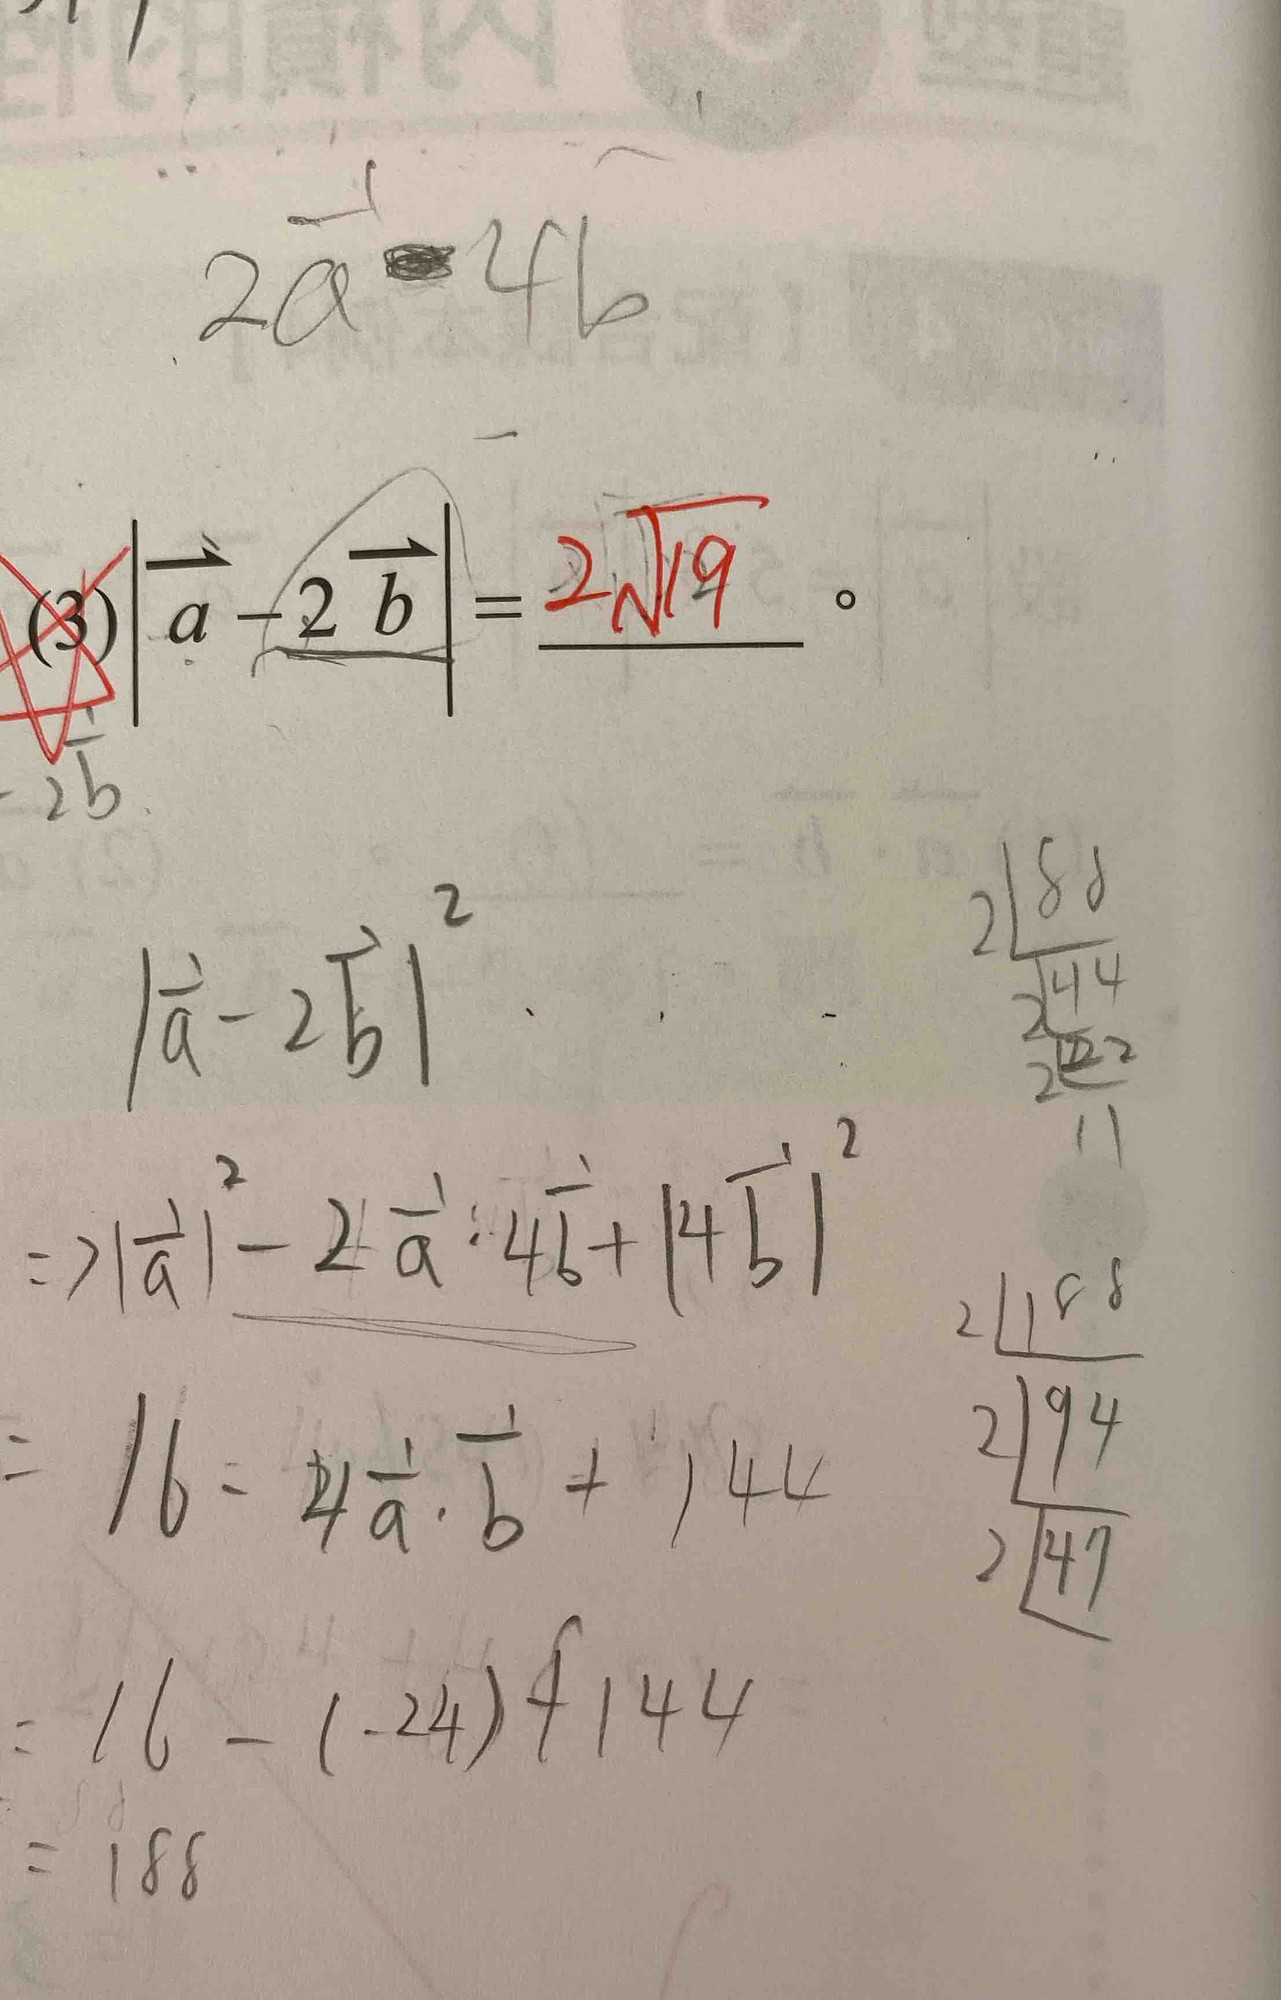 2a 4b
(3)|a − 2b| = 2√19 。
-2b
|a - 2b|²
=>|a|² - 2a·4b + |4b|²
= 16 - 4a·b + 144
= 16 - (-24) + 144
= 188
2 88
2 44
2 22
11
2 188
2 94
2 47